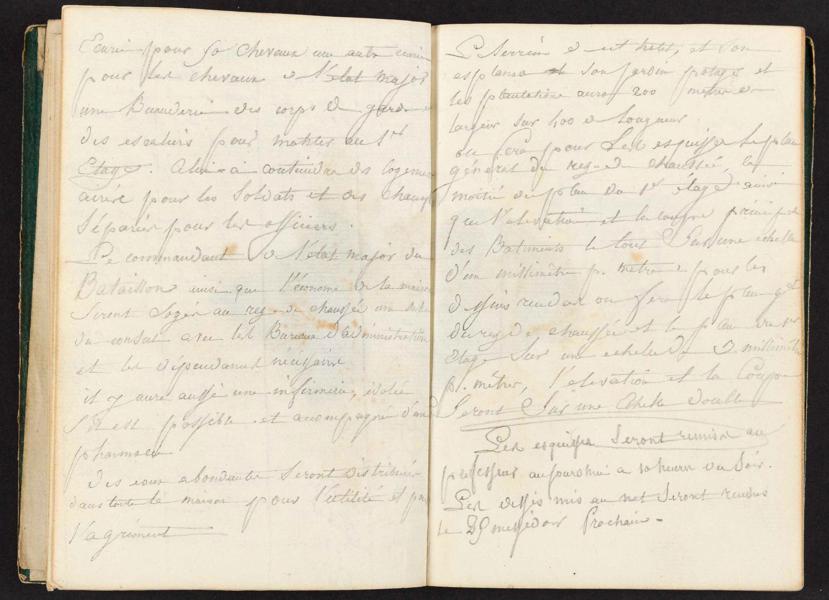 Ecurie pour 50 chevaux une autre ecurie
pour les chevaux de l'état major
une Buanderie des corps de garde
des escaliers pour monter au 1er
Etage. Celui-ci contiendra des logemen
aéré pour les Soldats et des chamb
Séparées pour les officiers.
Le commandant de l'état major du
Bataillon ainsi que l'économe de la maison
Seront logés au rez de chaussée une salle
du conseil avec les Bureaux d'administration
et les dépendances nécessaire
il y aura aussi une infirmerie, isolée
S'il est possible et accompagné d'une
pharmacie
Des eaux abondantes Seront distribuées
dans toute la maison pour l'utilité et pour
l'agrément
Le terrein et son
esplanade et son jardin potager et
les plantations auront 200 mètre de
largeur sur 400 de longueur
on fera pour Les esquisse le plan
général du rez de chaussée, la
moitié du plan du 1er étage ainsi
que l'elevation et la coupe principale
des Batiments le tout Sur une échelle
d'un millimètre pr. metre et pour les
dessins rendus on fera le plan gal
du rez de chaussée et le plan du 1er
Etage Sur une echelle de 2 millimètre
pr. mètre, l'elevation et la Coupe
Seront Sur une Echelle double
Les esquisse Seront remise au
professeur aujourdhui a 10 heures du Soir.
Les dessis mis au net Seront rendus
le 29 messidor Prochain -